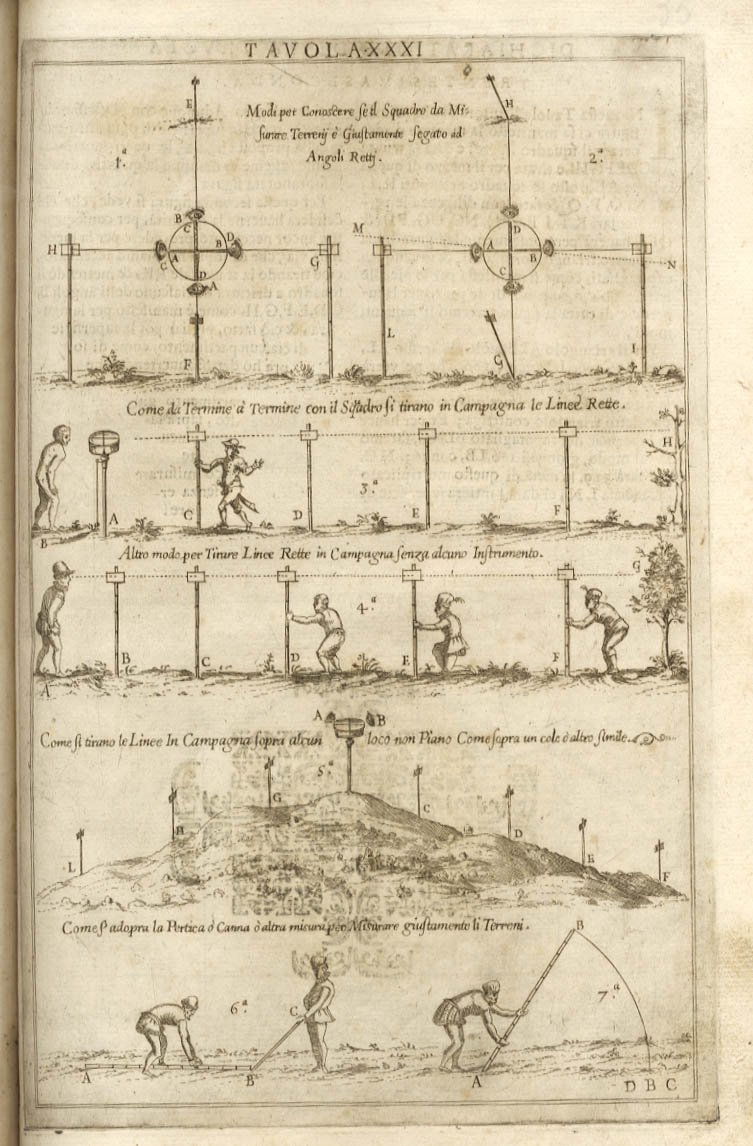 TAVOLA·XXXI
E
H
Modi per Conoscere se il Squadro da Mi-
surare Terrenij è Giustamente segato ad
Angoli Rettj.
1.ª
2.ª
B
C
D
H
A
B
C
G
D
A
F
M
D
A
B
C
N
L
G
I
Come da Termine à Termine con il Squadro si tirano in Campagna le Linee Rette.
H
3.ª
A
C
D
E
F
B
Altro modo per Tirare Linee Rette in Campagna senza alcuno Instrumento.
G
4.ª
A
B
C
D
E
F
A
B
Come si tirano le Linee In Campagna sopra alcun loco non Piano Come sopra un cole ò altro simile.
5.ª
G
C
H
D
L
E
F
Come s' adopra la Pertica ò Canna ò altra misura per Misurare giustamente li Terreni.
B
6.ª
C
7.ª
A
B
A
D B C